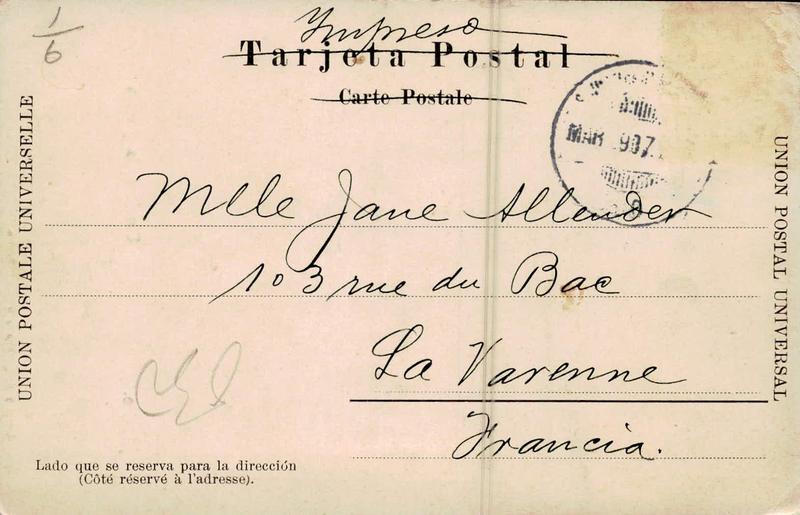 1/6
Impreso
Tarjeta Postal
Carte Postale
UNION POSTALE UNIVERSELLE
UNION POSTAL UNIVERSAL
MAR 907
Mlle Jane Allender
103 rue du Bac
La Varenne
Francia.
Lado que se reserva para la dirección
(Côté réservé à l'adresse).